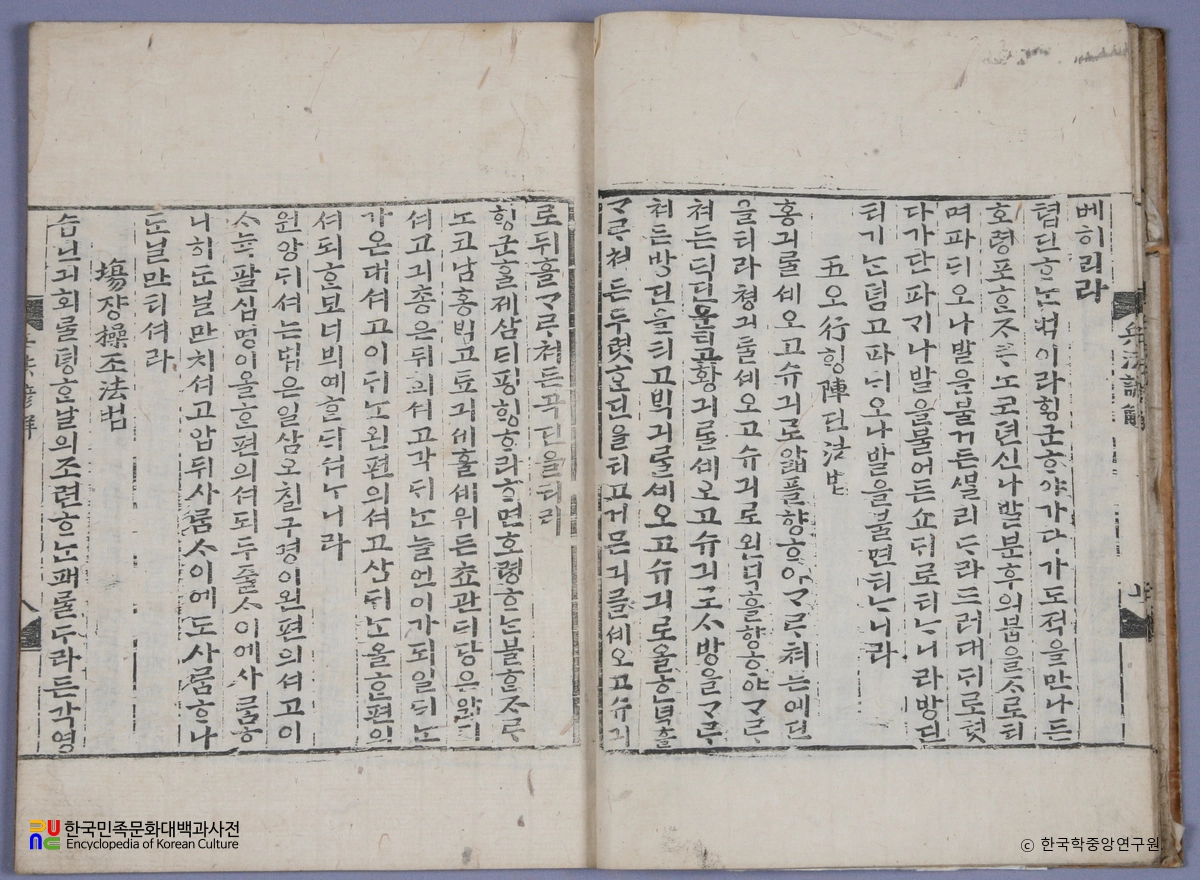 베히리라
텹단ᄒᆞᄂᆞᆫ법이라힝군ᄒᆞ야가다가도적을만나든
호령포ᄒᆞᆫᄌᆞᄅᆞ노코텬신나발분후의붑을ᄌᆞ로티
며파ᄃᆡ오나발을불거든ᄲᆞᆯ리ᄃᆞ라드러대ᄃᆡ로텻
다가단파ᄀᆡ나발을불어든쇼ᄃᆡ로티ᄂᆞ니라방딘
티기ᄂᆞᆫ텸고파ᄃᆡ오나발을불면티ᄂᆞ니라
五오行ᄒᆡᆼ陣딘法법
홍긔ᄅᆞᆯ셰오고슈긔로앏플향ᄒᆞ야ᄀᆞᄅᆞ쳐든예딘
을티라쳥긔ᄅᆞᆯ셰오고슈긔로왼녁흘향ᄒᆞ야ᄀᆞᄅᆞ
쳐든딕딘을티고황긔ᄅᆞᆯ셰오고슈긔로ᄉᆞ방을ᄀᆞᄅᆞ
쳐든방딘을티고ᄇᆡᆨ긔ᄅᆞᆯ셰오고슈긔로올ᄒᆞᆫ녁흘
ᄀᆞᄅᆞ쳐든두렷ᄒᆞᆫ딘을티고거믄긔ᄅᆞᆯ셰오고슈긔
로뒤흘ᄀᆞᄅᆞ쳐든곡딘을티라
ᄒᆡᆼ군을제삼ᄃᆡ평ᄒᆡᆼᄒᆞ라ᄒᆞ면호령ᄒᆞᄂᆞᆫ블ᄒᆞᆫᄌᆞᄅᆞ
노코남홍ᄇᆡᆨ고됴긔세흘셰워든쵸관ᄃᆡ당은앏ᄑᆡ
셔고긔총은뒤ᄒᆡ셔고각ᄃᆡᄂᆞᆫ늘언이가되일ᄃᆡᄂᆞᆫ
가온대셔고이ᄃᆡᄂᆞᆫ왼편의셔고삼ᄃᆡᄂᆞᆫ올ᄒᆞᆫ편의
셔되ᄒᆞᆫ보너븨예ᄒᆞᆫᄃᆡ셔ᄂᆞ니라
원앙ᄃᆡ셔ᄂᆞᆫ법은일삼오칠구명이왼편의셔고이
ᄉᆞ뉵팔십명이올ᄒᆞᆫ편의셔되두줄ᄉᆞ이에사ᄅᆞᆷᄒᆞ
나히ᄃᆞᆫ닐만치셔고압뒤사ᄅᆞᆷᄉᆞ이에도사ᄅᆞᆷᄒᆞ나
ᄃᆞᆫ닐만티셔라
場쟝操조法법
습딘긔회ᄅᆞᆯ뎡ᄒᆞᆫ날의조련ᄒᆞᄂᆞᆫ패ᄅᆞᆯᄃᆞ라든각영
兵法諺解
한국민족문화대백과사전
Encyclopedia of Korean Culture
ⓒ 한국학중앙연구원